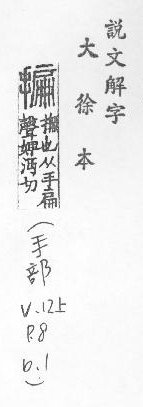 説文解字
大徐本
揙 撫也从手扁
聲婢沔切
(手部
V.12上
P.8
b.1)